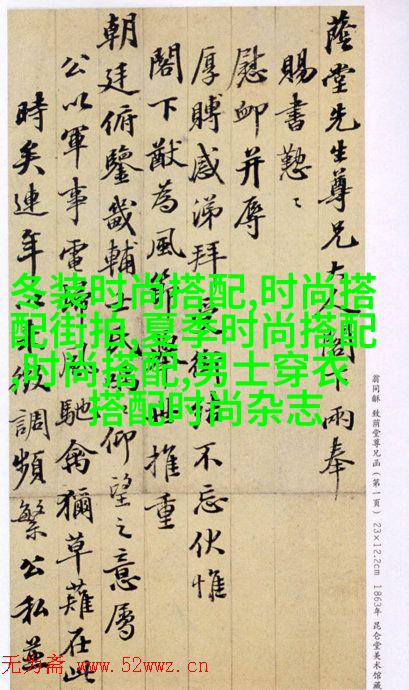 蔭堂先生尊兄大人閣下兩奉
賜書懃〻
慰卹并辱
厚賻感涕拜受 不忘伏惟
閣下猷為風節 世推重
朝廷俯鑒畿輔士民 仰望之意屬
公以軍事電 馳禽獮草薙在此
時矣連年 徵調頻繁公私並
冬装时尚搭配,时尚搭
配街拍,夏季时尚搭配
,时尚搭配,男士穿衣
搭配时尚杂志
翁同龢 致荫堂尊兄函(第一页) 23×12.2cm 1863年 昆仑堂美术馆藏
无为斋 www.52wwz.cn